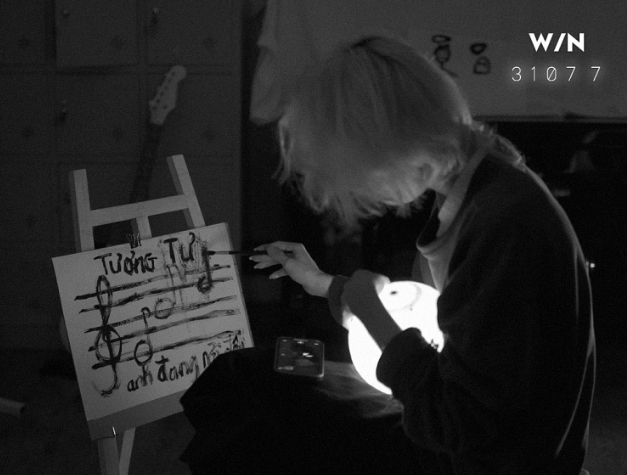 W/N
31077
TƯƠNG TƯ
anh đang